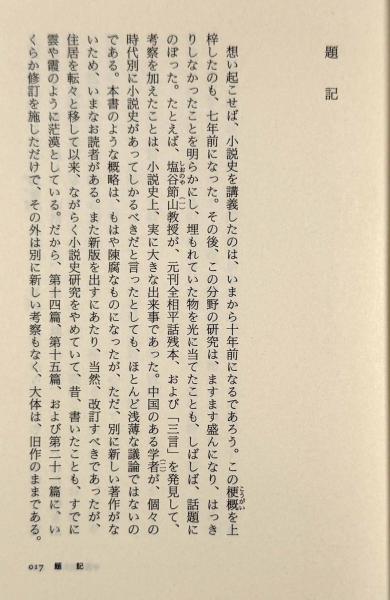 題記
想い起こせば、小説史を講義したのは、いまから十年前になるであろう。この梗概を上
こうがい
梓したのも、七年前になった。その後、この分野の研究は、ますます盛んになり、はっき
りしなかったことを明らかにし、埋もれていた物を光に当てたことも、しばしば、話題に
のぼった。たとえば、塩谷節山教授が、元刊全相平話残本、および「三言」を発見して、
しおのや
(一)
考察を加えたことは、小説史上、実に大きな出来事であった。中国のある学者が、個々の
(二)
時代別に小説史があってしかるべきだと言ったとしても、ほとんど浅薄な議論ではないの
である。本書のような概略は、もはや陳腐なものになったが、ただ、別に新しい著作がな
いため、いまなお読者がある。また新版を出すにあたり、当然、改訂すべきであったが、
住居を転々と移して以来、ながらく小説史研究をやめていて、昔、書いたことも、すでに
雲や霞のように茫漠としている。だから、第十四篇、第十五篇、および第二十一篇に、い
くらか修訂を施しただけで、その外は別に新しい考察もなく、大体は、旧作のままである。
017 題記